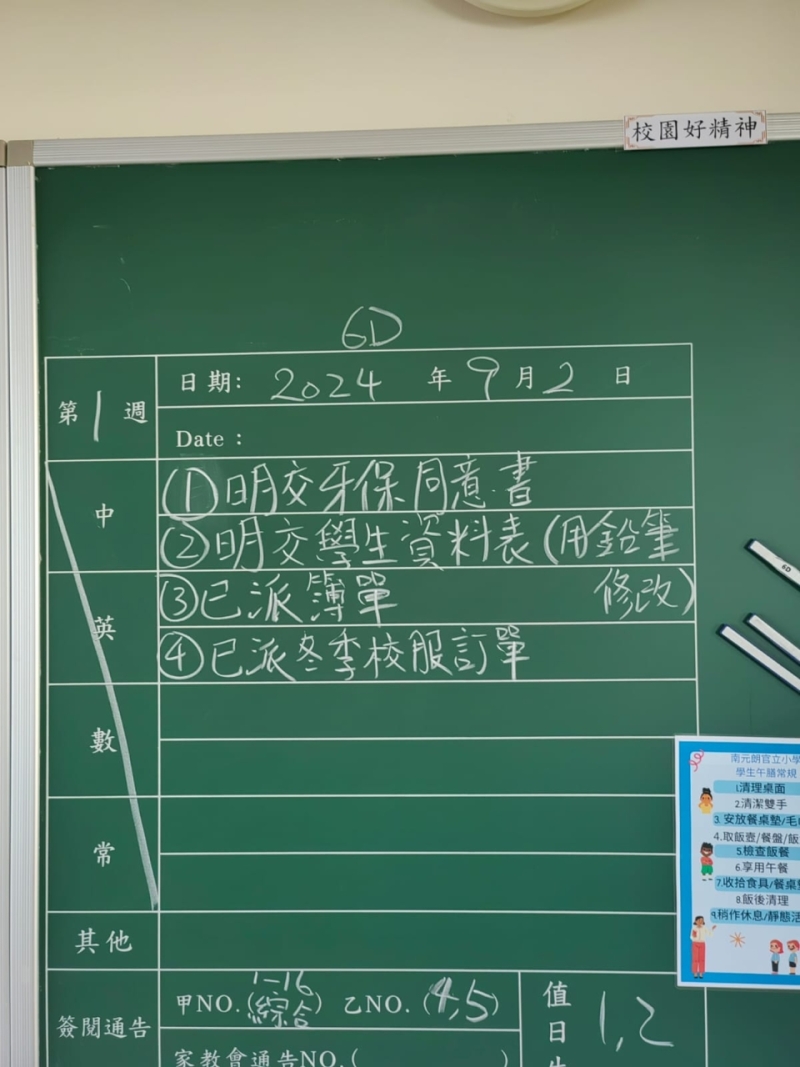 校園好精神
6D
第1週
日期: 2024 年 9 月 2 日
Date :
中
①明交牙保同意書
②明交學生資料表(用鉛筆
修改)
英
③已派簿單
④已派冬季校服訂單
數
常
其他
簽閱通告
甲NO.(1-16 綜合) 乙NO.(4,5)
家教會通告NO.( )
值日生 1,2
6D
南元朗官立小學
學生午膳常規
1.清理桌面
2.清潔雙手
3.安放餐桌墊/毛
4.取飯壺/餐盤/飯
5.檢查飯餐
6.享用午餐
7.收拾食具/餐桌
8.飯後清理
9.稍作休息/靜態活